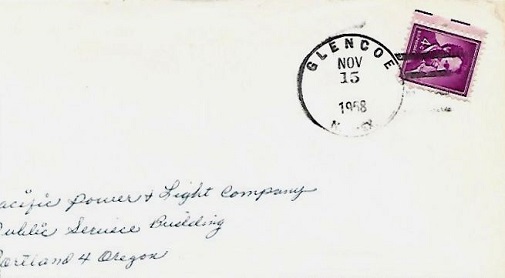 GLENCOE
NOV
15
1958
acific Power & Light Company
ublic Service Building
ortland 4 Oregon